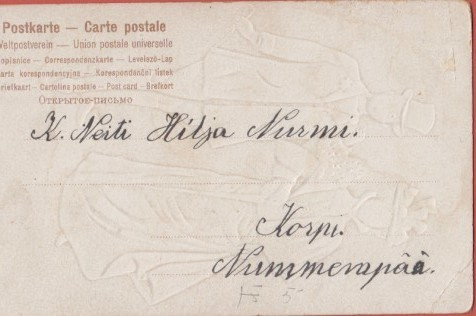 Postkarte — Carte postale
Weltpostverein — Union postale universelle
Dopisnice — Correspondenzkarte — Levelező-Lap
Karta korespondencyjna — Korespondenční lístek
Briefkaart — Cartolina postale — Post card — Brefkort
ОТКРЫТОЕ-ПИСЬМО
K. Neiti Hilja Nurmi.
Korpi.
Nummenpää.